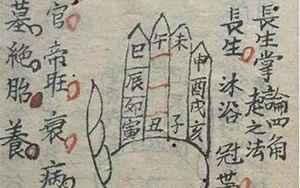 長生掌論四角起之法
長生 沐浴 冠帶
申酉戌亥
未子
午丑
巳辰卯寅
官 帝旺 衰 病
墓 絶 胎 養